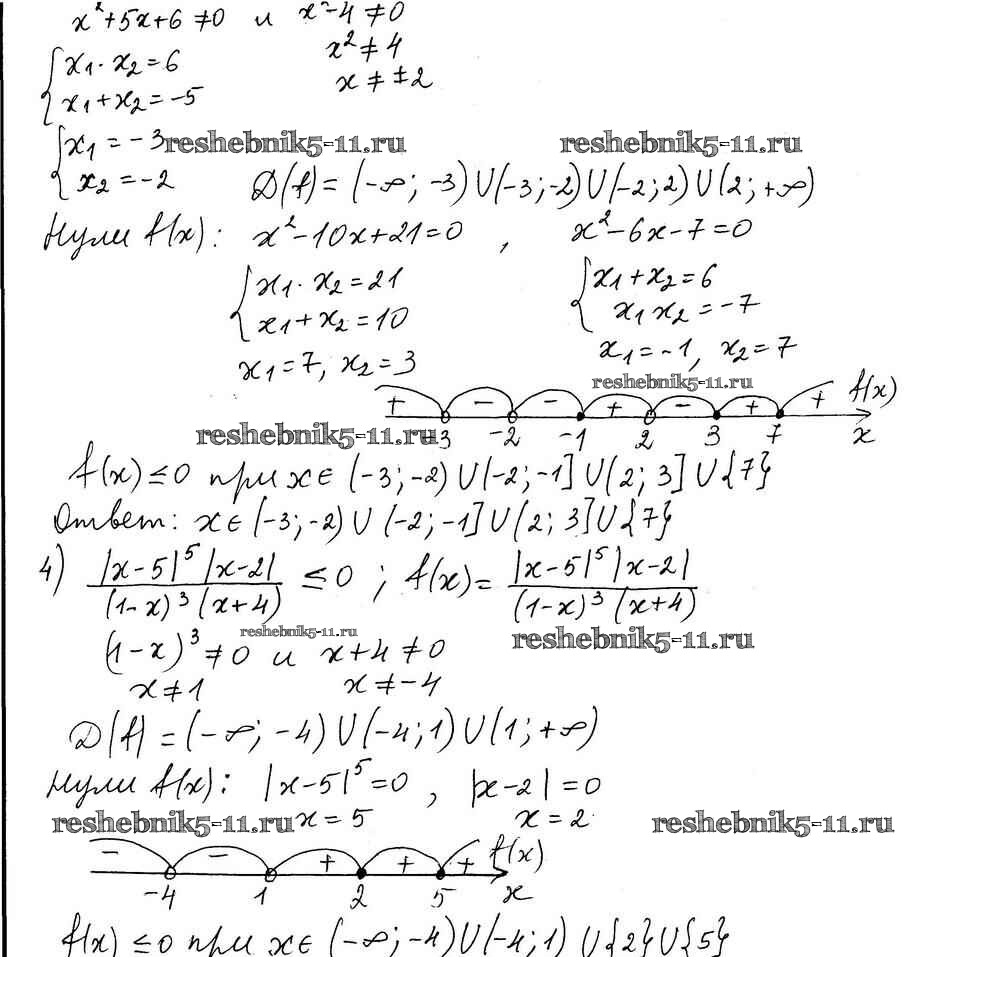 x²+5x+6≠0 и x²-4≠0
{x₁·x₂=6 x²≠4
x₁+x₂=-5 x≠±2
{x₁=-3 reshebnik5-11.ru reshebnik5-11.ru
x₂=-2 D(f)=(-∞;-3)∪(-3;-2)∪(-2;2)∪(2;+∞)
Нули f(x): x²-10x+21=0 , x²-6x-7=0
{x₁·x₂=21 {x₁+x₂=6
x₁+x₂=10 x₁x₂=-7
x₁=7, x₂=3 x₁=-1, x₂=7
reshebnik5-11.ru
+ - - + - + + f(x)
reshebnik5-11.ru -3 -2 -1 2 3 7 x
f(x)≤0 при x∈(-3;-2)∪(-2;-1]∪(2;3]∪{7}
Ответ: x∈(-3;-2)∪(-2;-1]∪(2;3]∪{7}
4) |x-5|⁵|x-2| / (1-x)³(x+4) ≤0 ; f(x)= |x-5|⁵|x-2| / (1-x)³(x+4)
reshebnik5-11.ru reshebnik5-11.ru
(1-x)³≠0 и x+4≠0
x≠1 x≠-4
D(f)=(-∞;-4)∪(-4;1)∪(1;+∞)
Нули f(x): |x-5|⁵=0 , |x-2|=0
reshebnik5-11.ru x=5 x=2 reshebnik5-11.ru
- - + + + f(x)
-4 1 2 5 x
f(x)≤0 при x∈(-∞;-4)∪(-4;1)∪{2}∪{5}